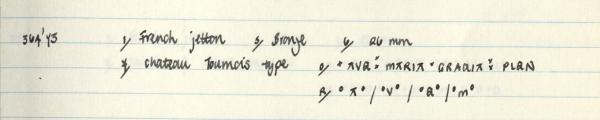 364'43 1, French jetton 5, Bronze 6, 26 mm
7, Chateau Tournois type 8, * AVE : MARIA * GRACIA : PLEN
R, ° A ° / ° V ° / ° E ° / ° M °